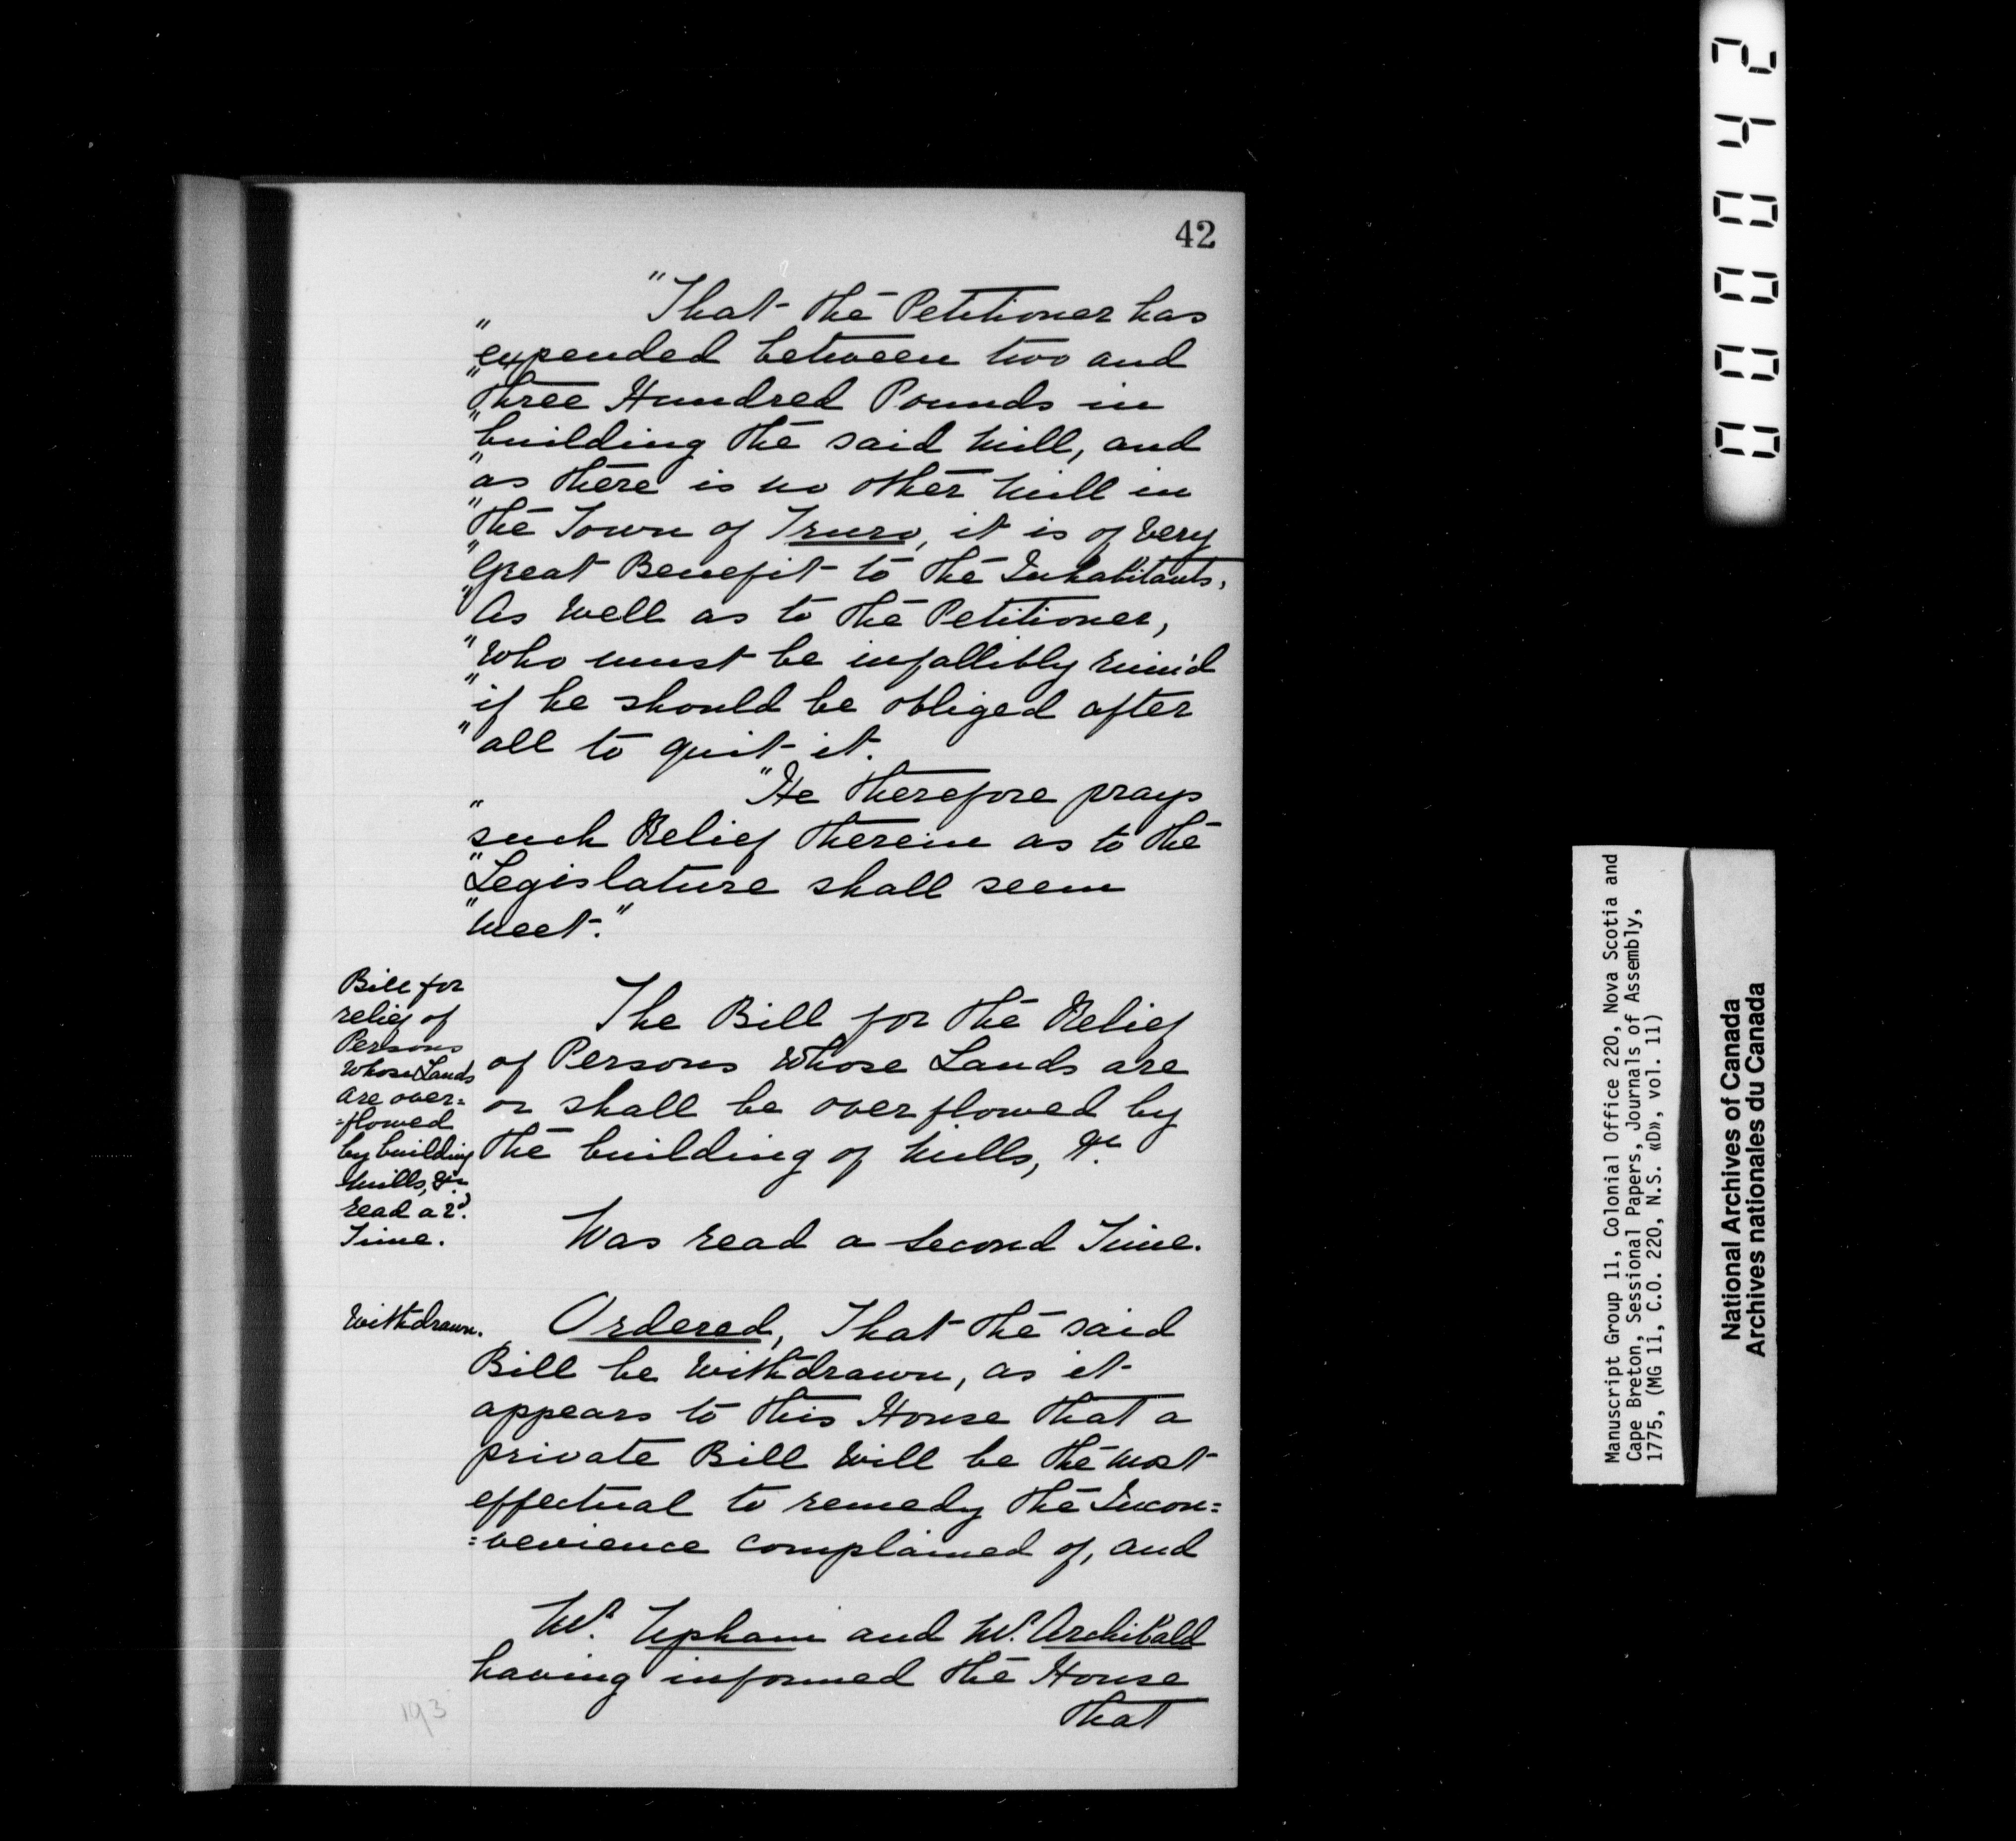 42
"That the Petitioner has
"expended between two and
"three Hundred Pounds in
"building the said Mill, and
"as there is no other Mill in
"the Town of Truro, it is of very
"Great Benefit to the Inhabitants,
"As well as to the Petitioner,
"Who must be infallibly ruin'd
"if he should be obliged after
"all to quit it.
"He therefore prays
"such Relief therein as to the
"Legislature shall seem
"Meet."
Bill for
relief of
Persons
whose Lands
are over=
=flowed
by building
Mills, &c.
read a 2d.
Time.
The Bill for the Relief
of Persons whose Lands are
or shall be overflowed by
the building of Mills, &c.
Was read a second Time.
Withdrawn.
Ordered, That the said
Bill be withdrawn, as it
appears to this House that a
private Bill will be the most
effectual to remedy the Incon=
=venience complained of, and
Mr. Upham and Mr. Archibald
having informed the House
that
193
240000
Manuscript Group 11, Colonial Office 220, Nova Scotia and
Cape Breton, Sessional Papers, Journals of Assembly,
1775, (MG 11, C.O. 220, N.S. «D», vol. 11)
National Archives of Canada
Archives nationales du Canada